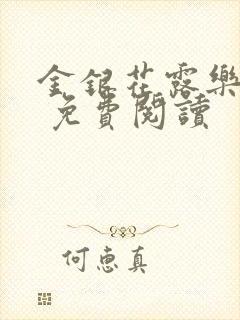 金銀花露樂
免費閱讀
何惠真